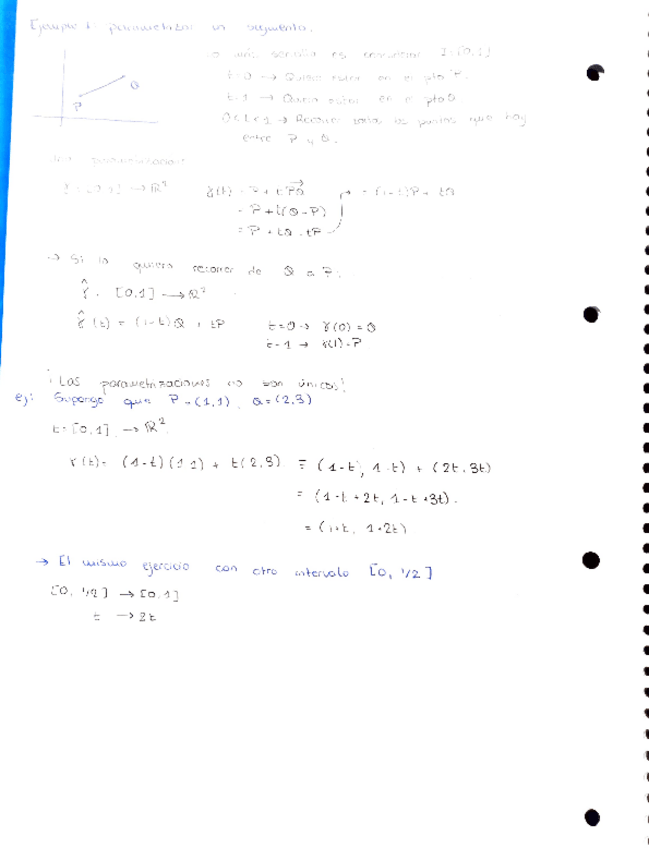 Ejemplo 1: parametrizar un segmento.
Lo más sencillo es encontrar I=[0,1]
t=0 → Quiero estar en el pto P.
t=1 → Quiero estar en el pto Q
0<t<1 → Recorrer todos los puntos que hay
entre P y Q.
P
Q
γ: [0,1] → R²
γ(t) = P + tPQ
= P + t(Q-P)
= P + tQ - tP
= (1-t)P + tQ
→ Si la quiero recorrer de Q a P:
γ̂: [0,1] → R²
γ̂(t) = (1-t)Q + tP
t=0 → γ(0) = Q
t=1 → γ(1)=P
¡Las parametrizaciones no son únicas!
ej: Supongo que P=(1,1), Q=(2,3)
t=[0,1] → R²
γ(t)= (1-t)(1,1) + t(2,3) = (1-t, 1-t) + (2t, 3t)
= (1-t+2t, 1-t+3t).
= (1+t, 1+2t)
→ El mismo ejercicio con otro intervalo [0, 1/2]
[0, 1/2] → [0,1]
t → 2t